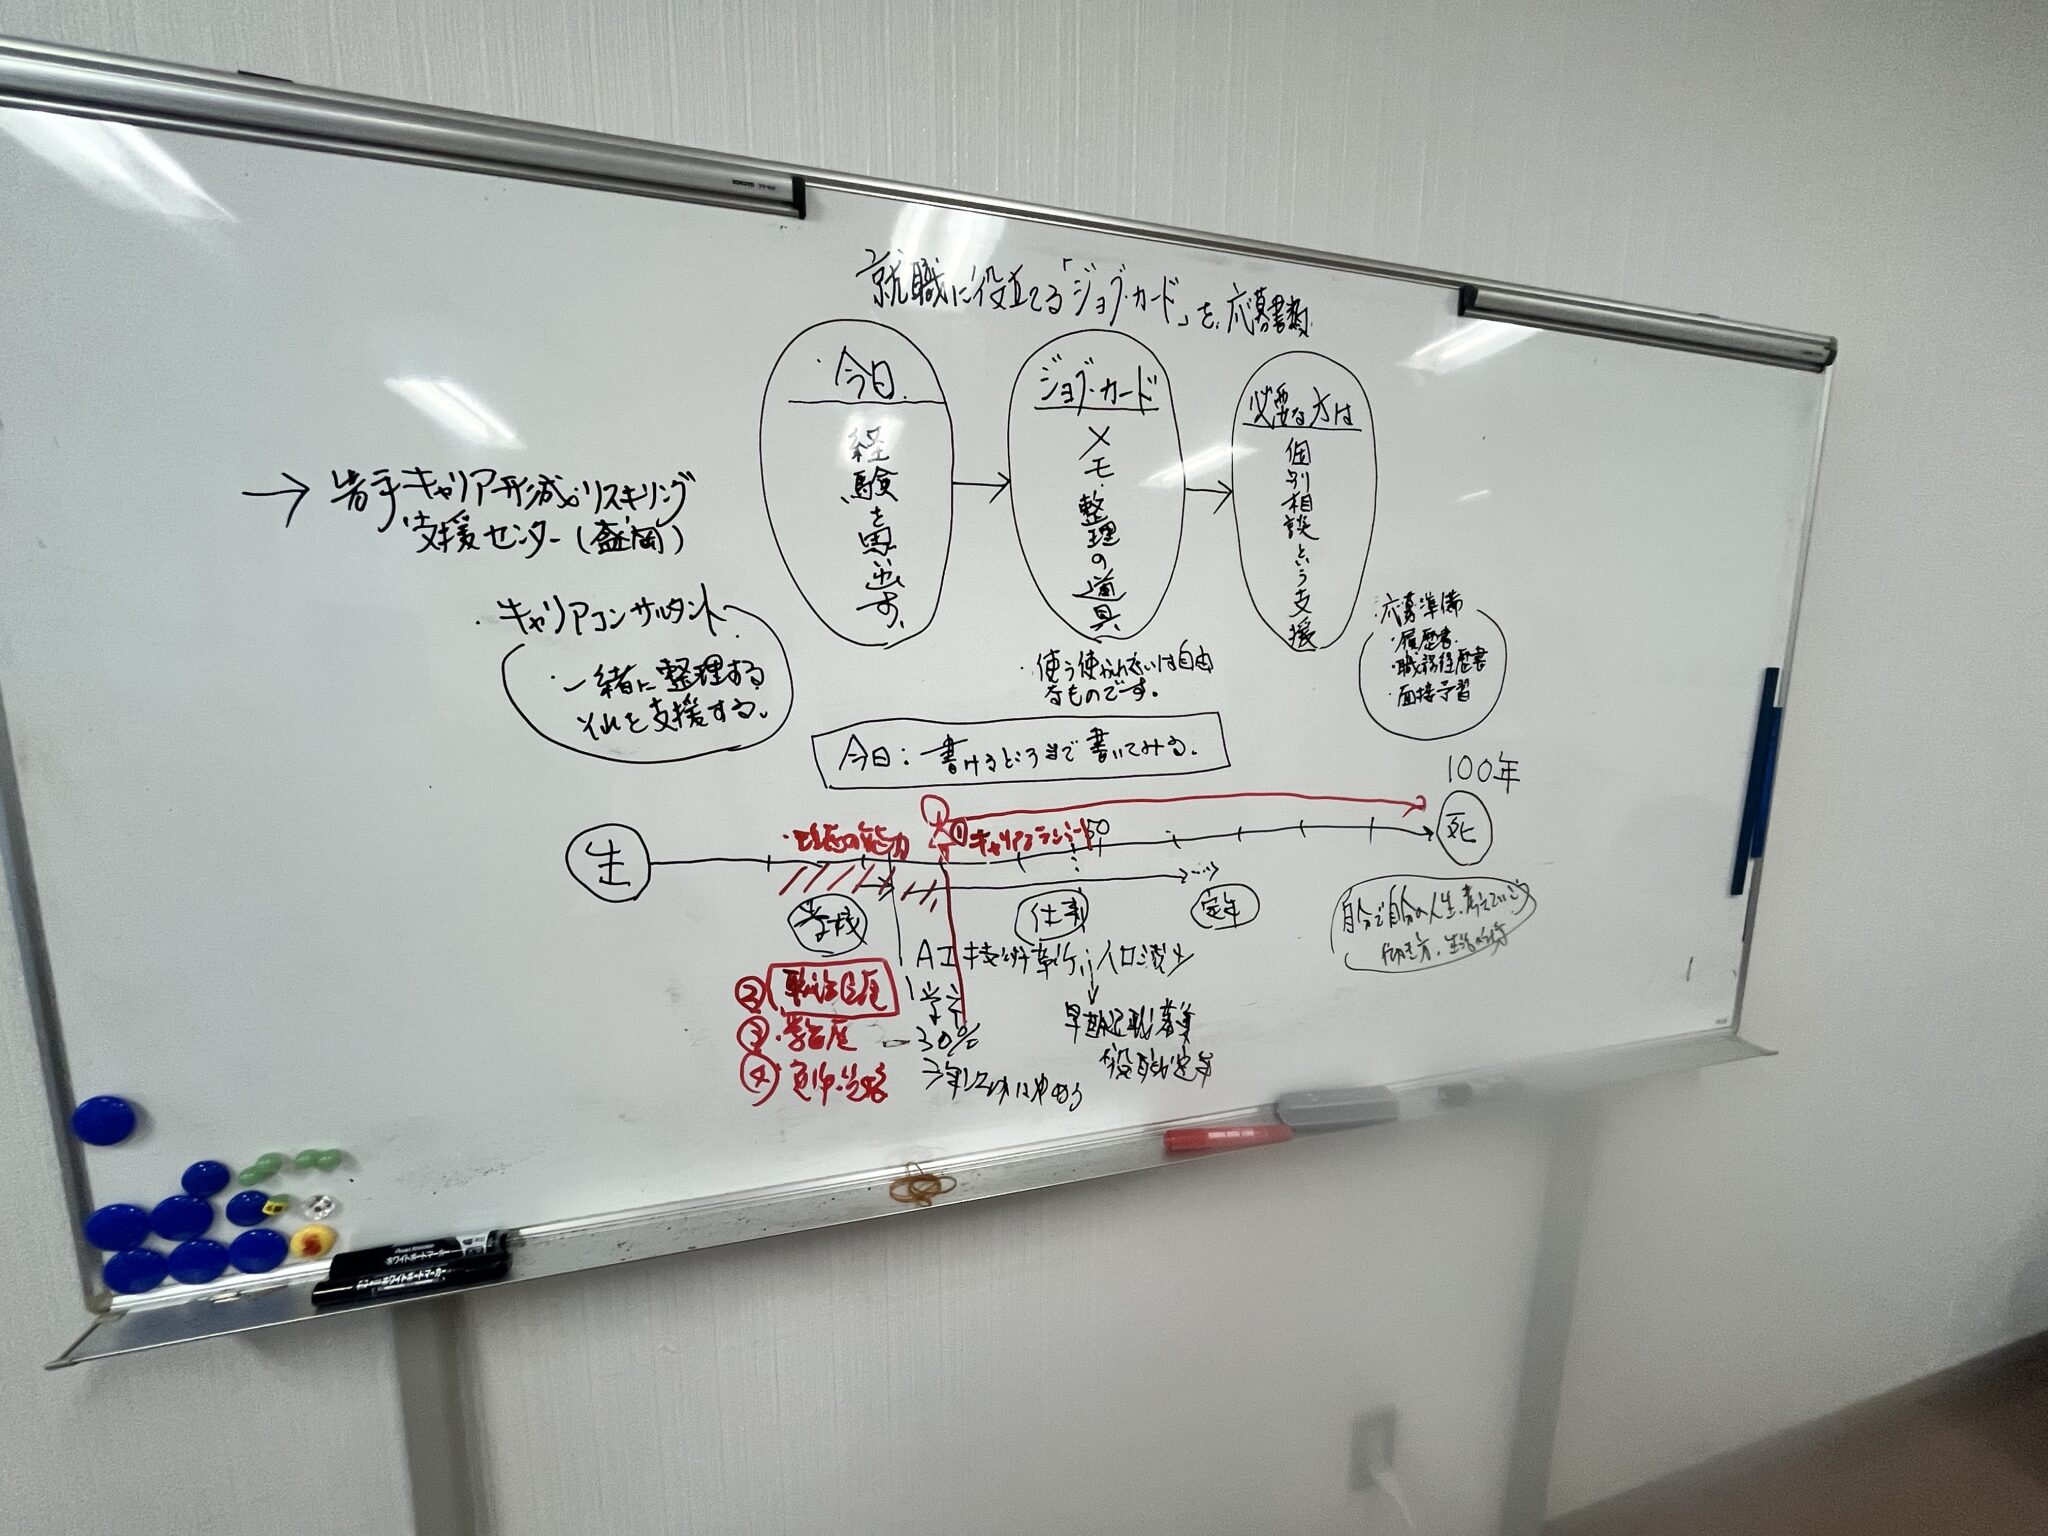 就職に役立てる「ジョブ・カード」を応募書類
今日
経験を思い出す。
ジョブ・カード
メモ・整理の道具
必要な方は
個別相談という支援
→岩手キャリア形成・リスキリング
支援センター(盛岡)
・キャリアコンサルタント
・一緒に整理する
それを支援する。
・使う使わないは自由
なものです。
・応募準備
・履歴書
・職務経歴書
・面接予習
今日:書けるところまで書いてみる。
100年
生
①キャリアプラン
50
死
学校
仕事
定年
自分で自分の人生、考えていこう
働き方、生活
AI 技術革新 人口減少
②職務経歴
③・学習歴
④免許・資格
30%
早期退職募集
役職定年
ホワイトボードマーカー
ホワイトボードマーカー